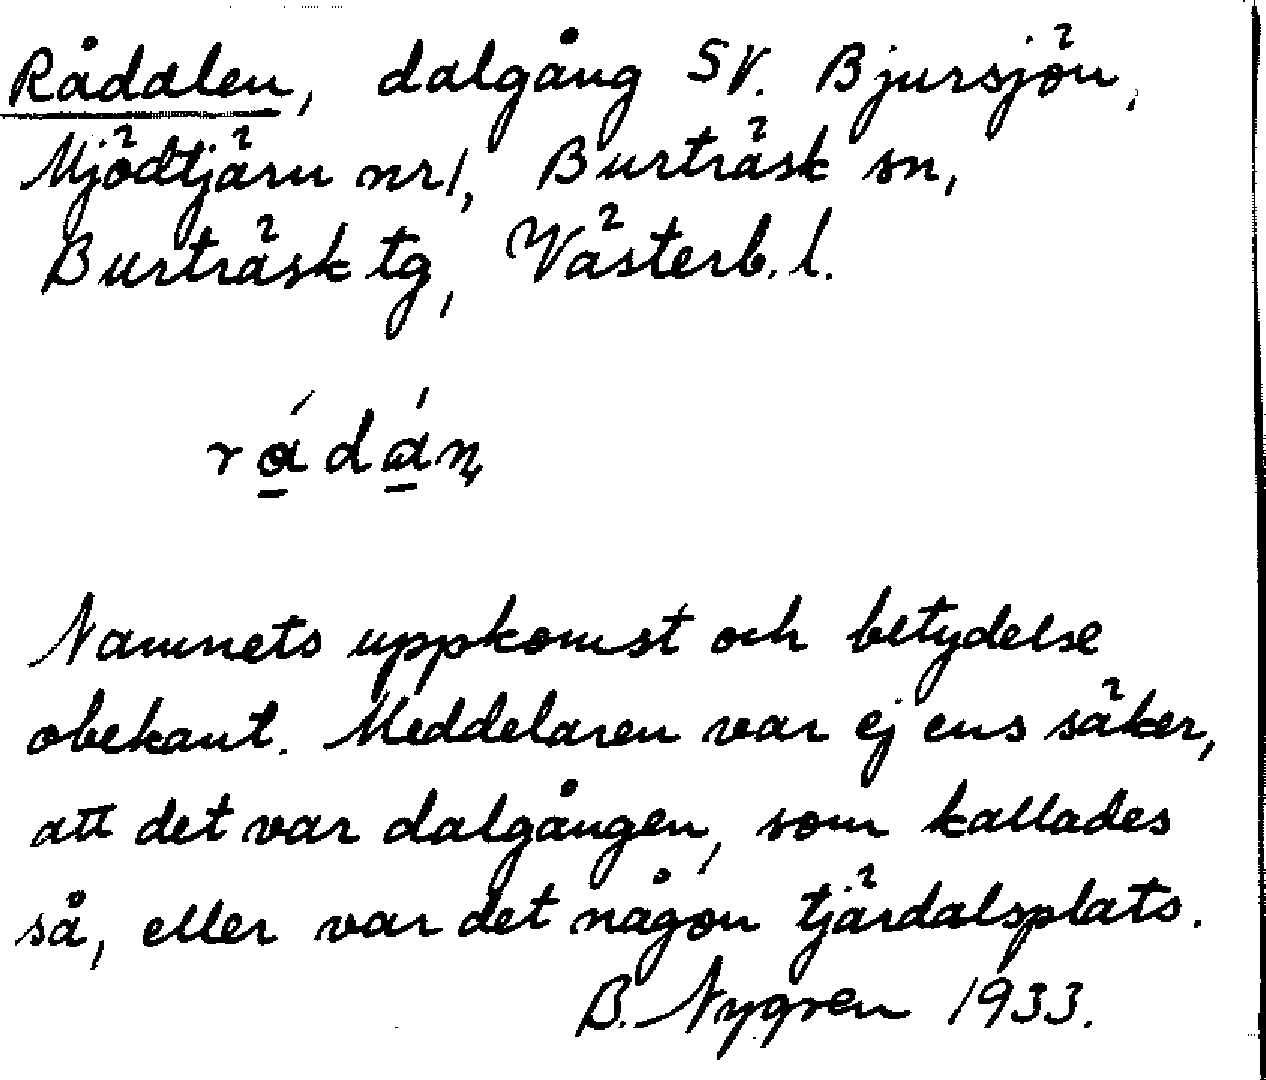 Rådalen, dalgång SV. Bjursjön,
Mjödtjärn nr 1, Burträsk sn,
Burträsk tg, Västerb. l.
rádán
Namnets uppkomst och betydelse
obekant. Meddelaren var ej ens säker,
att det var dalgången, som kallades
så, eller var det någon tjärdalsplats.
B. Nygren 1933.